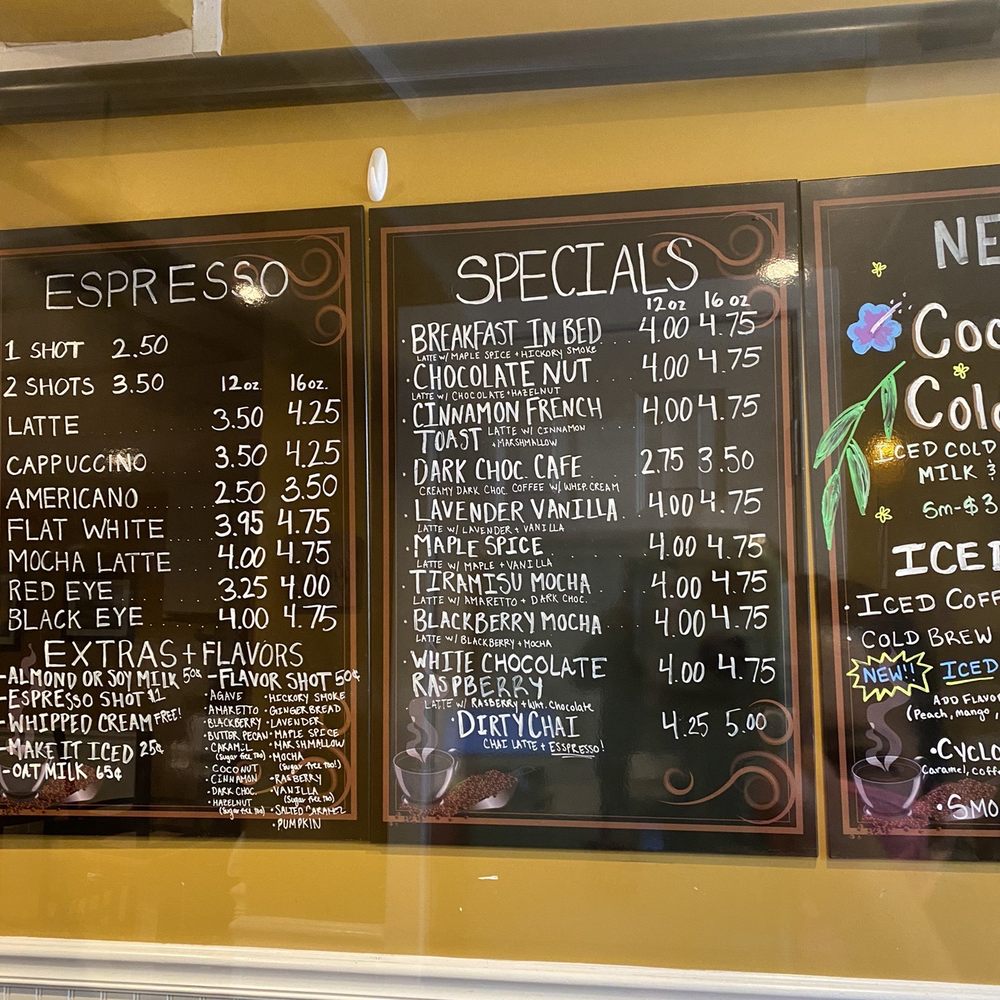 ESPRESSO
1 SHOT 2.50
2 SHOTS 3.50 12oz. 16oz.
LATTE 3.50 4.25
CAPPUCCINO 3.50 4.25
AMERICANO 2.50 3.50
FLAT WHITE 3.95 4.75
MOCHA LATTE 4.00 4.75
RED EYE 3.25 4.00
BLACK EYE 4.00 4.75
EXTRAS + FLAVORS
-ALMOND OR SOY MILK 50¢
-ESPRESSO SHOT $1
-WHIPPED CREAM FREE!
-MAKE IT ICED 25¢
-OAT MILK 65¢
-FLAVOR SHOT 50¢
• AGAVE
• AMARETTO
• BLACKBERRY
• BUTTER PECAN
• CARAMEL
(Sugar free too)
• COCONUT
• CINNAMON
• DARK CHOC.
• HAZELNUT
(Sugar free too)
• HICKORY SMOKE
• GINGERBREAD
• LAVENDER
• MAPLE SPICE
• MARSHMALLOW
• MOCHA
(Sugar free too!)
• RASBERRY
• VANILLA
(Sugar free too)
• SALTED CARAMEL
• PUMPKIN
SPECIALS
12oz 16oz
• BREAKFAST IN BED 4.00 4.75
LATTE W/ MAPLE SPICE + HICKORY SMOKE
• CHOCOLATE NUT 4.00 4.75
LATTE W/ CHOCOLATE + HAZELNUT
• CINNAMON FRENCH 4.00 4.75
TOAST LATTE W/ CINNAMON
+ MARSHMALLOW
• DARK CHOC. CAFE 2.75 3.50
CREAMY DARK CHOC. COFFEE W/ WHIP. CREAM
• LAVENDER VANILLA 4.00 4.75
LATTE W/ LAVENDER + VANILLA
• MAPLE SPICE 4.00 4.75
LATTE W/ MAPLE + VANILLA
• TIRAMISU MOCHA 4.00 4.75
LATTE W/ AMARETTO + DARK CHOC.
• BLACKBERRY MOCHA 4.00 4.75
LATTE W/ BLACKBERRY + MOCHA
• WHITE CHOCOLATE 4.00 4.75
RASPBERRY
LATTE W/ RASBERRY + Wht. Chocolate
• DIRTY CHAI 4.25 5.00
CHAI LATTE + ESSPRESSO!
NE
Coc
Col
ICED COLD
MILK &
Sm-$3
ICED
• ICED COFF
• COLD BREW
NEW!! ICED
ADD FLAVO
(Peach, mango,
• CYCLO
Caramel, Coff
• SMO